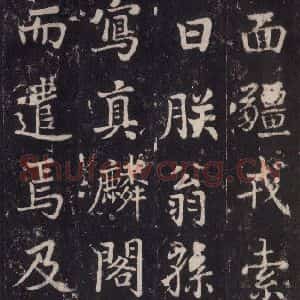 面疆戎索
日朕翁孫
寫真麟閣
而遣焉及
Shufawang.Cn